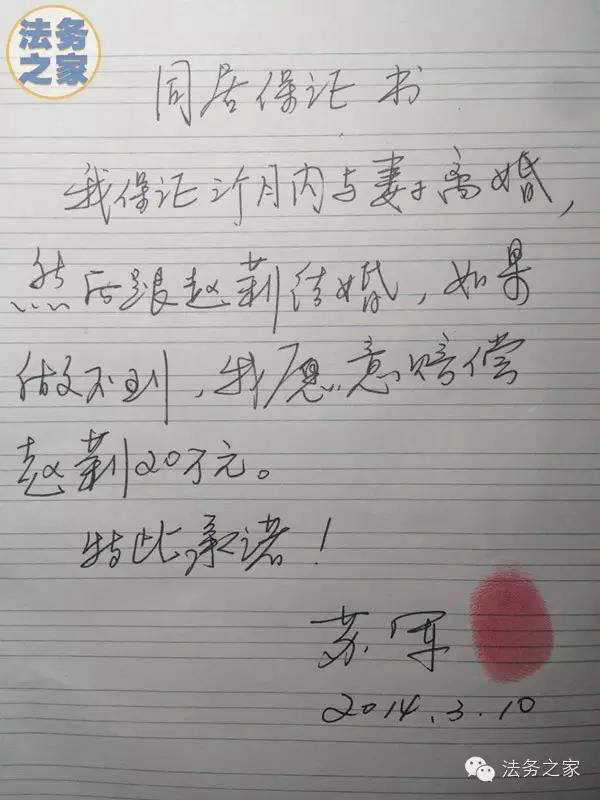 法务
之家
同居保证书
我保证个月内与妻子离婚，
然后跟赵莉结婚，如果
做不到，我愿意赔偿
赵莉20万元。
特此承诺！
苏军
2014.3.10
法务之家